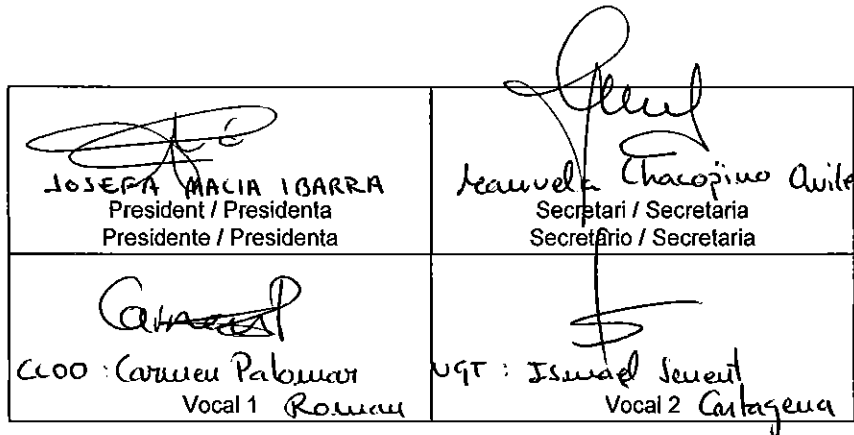 JOSEFA MACIA IBARRA
President / Presidenta
Presidente / Presidenta
Manuela Chacopino Avile
Secretari / Secretaria
Secretario / Secretaria
CCOO : Carmen Palomar
Vocal 1 Roman
UGT : Ismael Senent
Vocal 2 Cartagena